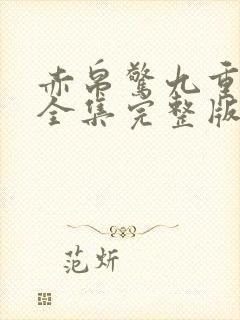 赤帛驚九重
全集完整版
范炘